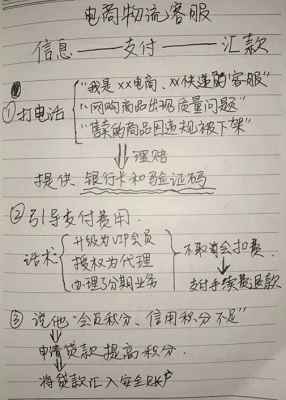 电商物流客服
信息——支付——汇款
①打电话
"我是xx电商、xx快递的客服"
"网购商品出现质量问题"
"售卖的商品因违规被下架"
理赔
提供 银行卡和验证码
②引导支付费用.
话术
升级为VIP会员
授权为代理
办理了分期业务
不取消会扣费.
支付手续费退款
③说他"会员积分、信用积分不足"
申请贷款提高积分.
将贷款汇入安全账户